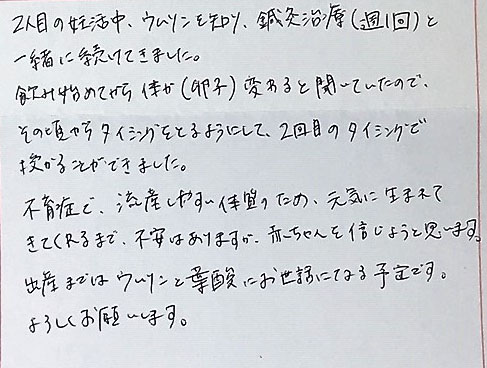 2人目の妊活中、ウムリンを知り、鍼灸治療(週1回)と
一緒に続けてきました。
飲み始めてから体が(卵子)変わると聞いていたので、
その頃からタイミングをとるようにして、2回目のタイミングで
授かることができました。
不育症で、流産しやすい体質のため、元気に生まれて
きてくれるまで、不安はありますが、赤ちゃんを信じようと思います。
出産まではウムリンと葉酸にお世話になる予定です。
よろしくお願いします。